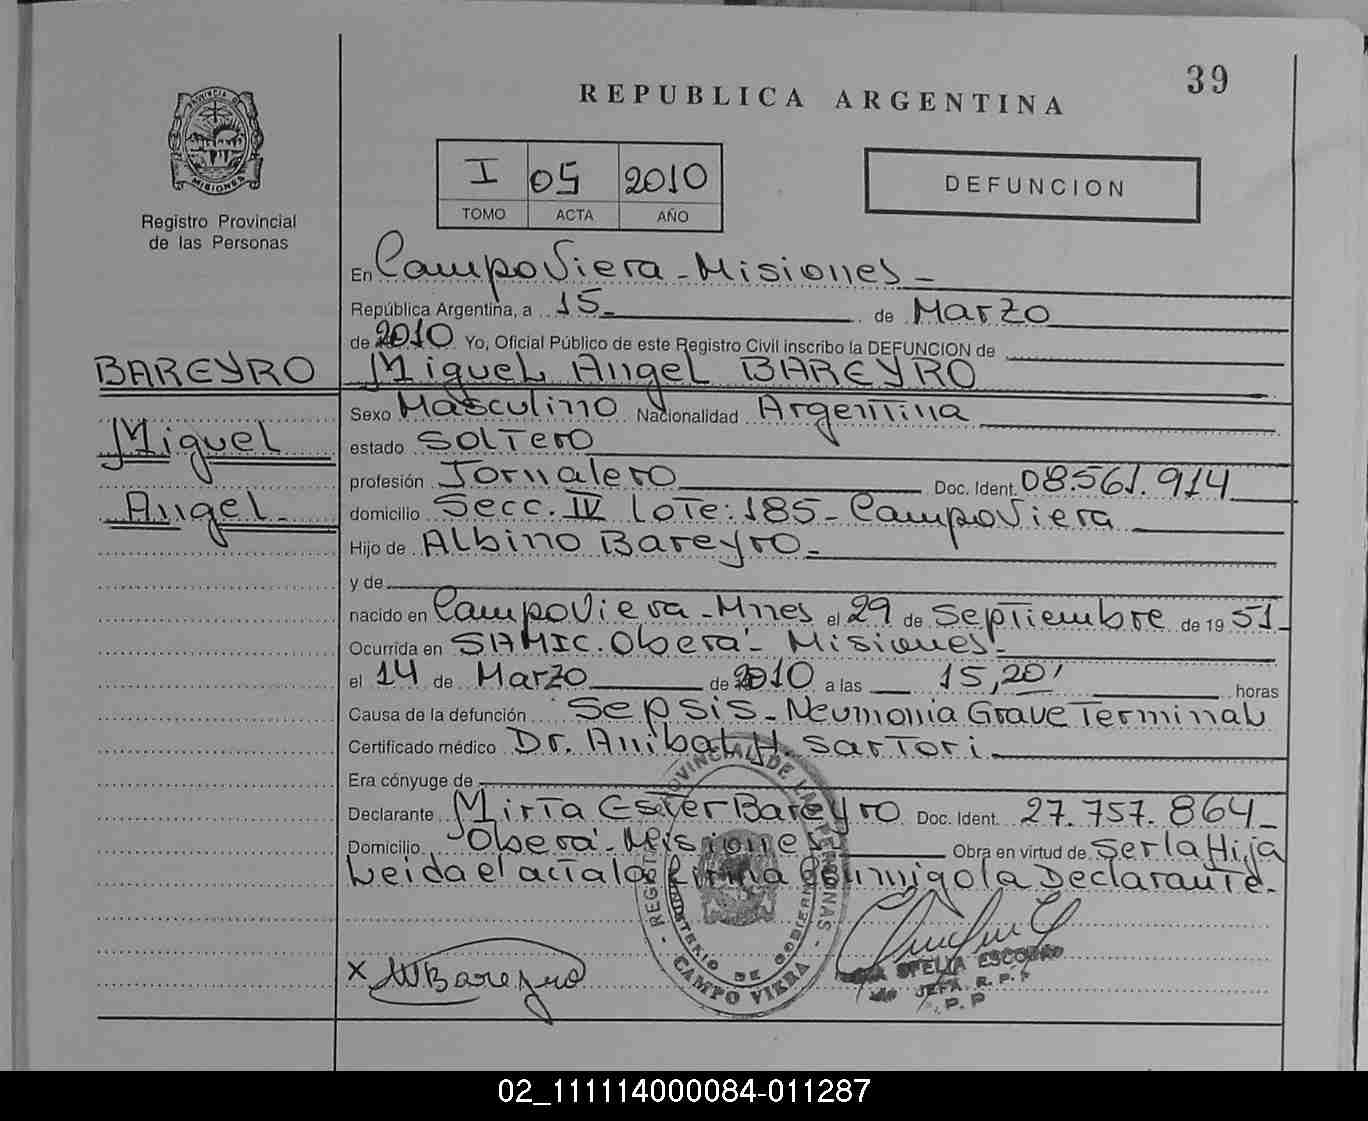 39
REPUBLICA ARGENTINA
PROVINCIA DE
MISIONES
Registro Provincial
de las Personas
I 05 2010
TOMO ACTA AÑO
DEFUNCION
En Campo Viera - Misiones -
República Argentina, a 15 de Marzo
de 2010 Yo, Oficial Público de este Registro Civil inscribo la DEFUNCION de
BAREYRO Miguel Angel BAREYRO
Sexo Masculino Nacionalidad Argentina
Miguel estado Soltero
profesión Jornalero Doc. Ident. 08.561.914
Angel - domicilio Secc. IV Lote: 185 - Campo Viera
Hijo de Albino Bareyro -
y de
nacido en Campo Viera - Mnes el 29 de Septiembre de 1951 -
Ocurrida en SAMIC. Oberá - Misiones -
el 14 de Marzo de 2010 a las 15,20' horas
Causa de la defunción Sepsis - Neumonia Grave Terminal
Certificado médico Dr. Anibal H. Sartori
Era cónyuge de
Declarante Mirta Ester Bareyro Doc. Ident. 27.757.864 -
Domicilio Oberá - Misiones Obra en virtud de ser la Hija
Leida el acta la firma conmigo la Declarante -
REGISTRO PROVINCIAL DE LAS PERSONAS - CAMPO VIERA -
MINISTERIO DE GOBIERNO
x M Bareyro
OFELIA ESCOBAR
JEFA R. P. P.
02_111114000084-011287